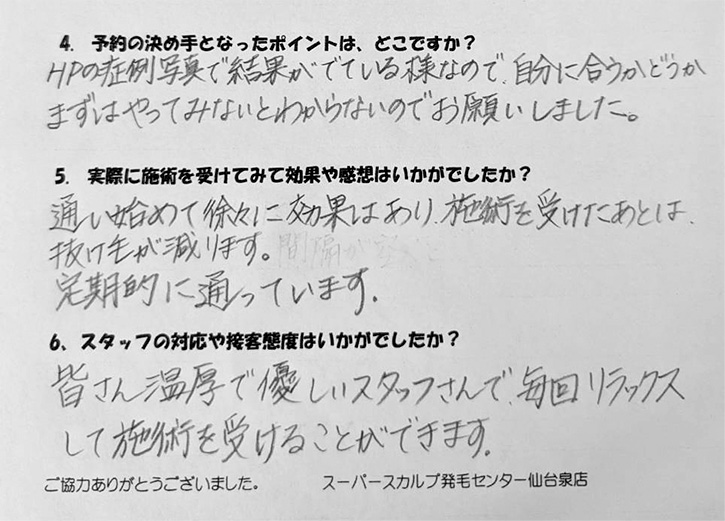 4. 予約の決め手となったポイントは、どこですか？
HPの症例写真で結果がでている様なので、自分に合うかどうか
まずはやってみないとわからないのでお願いしました。
5. 実際に施術を受けてみて効果や感想はいかがでしたか？
通い始めて徐々に効果はあり、施術を受けたあとは、
抜け毛が減ります。間隔が空くと
定期的に通っています。
6、スタッフの対応や接客態度はいかがでしたか？
皆さん温厚で優しいスタッフさんで、毎回リラックス
して施術を受けることができます。
ご協力ありがとうございました。 スーパースカルプ発毛センター仙台泉店